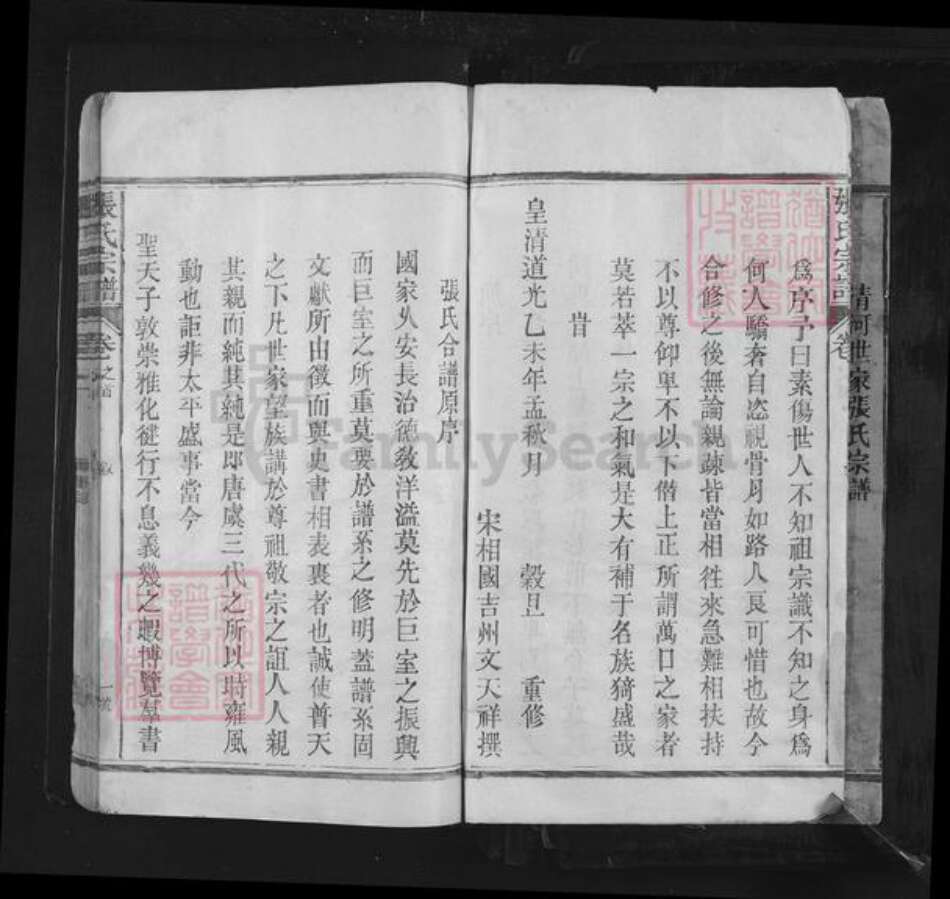 清河世家張氏宗譜
張氏宗譜 卷
為序予曰素傷世人不知祖宗識不知之身為
何人驕奢自恣視骨月如路人良可惜也故今
合修之後無論親疎皆當相徃來急難相扶持
不以尊仰卑不以下僭上正所謂萬口之家者
莫若萃一宗之和氣是大有補于名族猗盛哉
旹
皇清道光乙未年孟秋月 穀旦 重修
宋相國吉州文天祥撰
張氏合譜原序
國家久安長治德教洋溢莫先於巨室之振興
而巨室之所重莫要於譜系之修明蓋譜系固
文獻所由徵而與史書相表裏者也誠使普天
之下凡世家望族講於尊祖敬宗之誼人人親
其親而純其純是即唐虞三代之所以時雍風
動也詎非太平盛事當今
聖天子敦崇雅化健行不息義幾之暇博覽羣書
張氏宗譜 卷之首 一號
FamilySearch